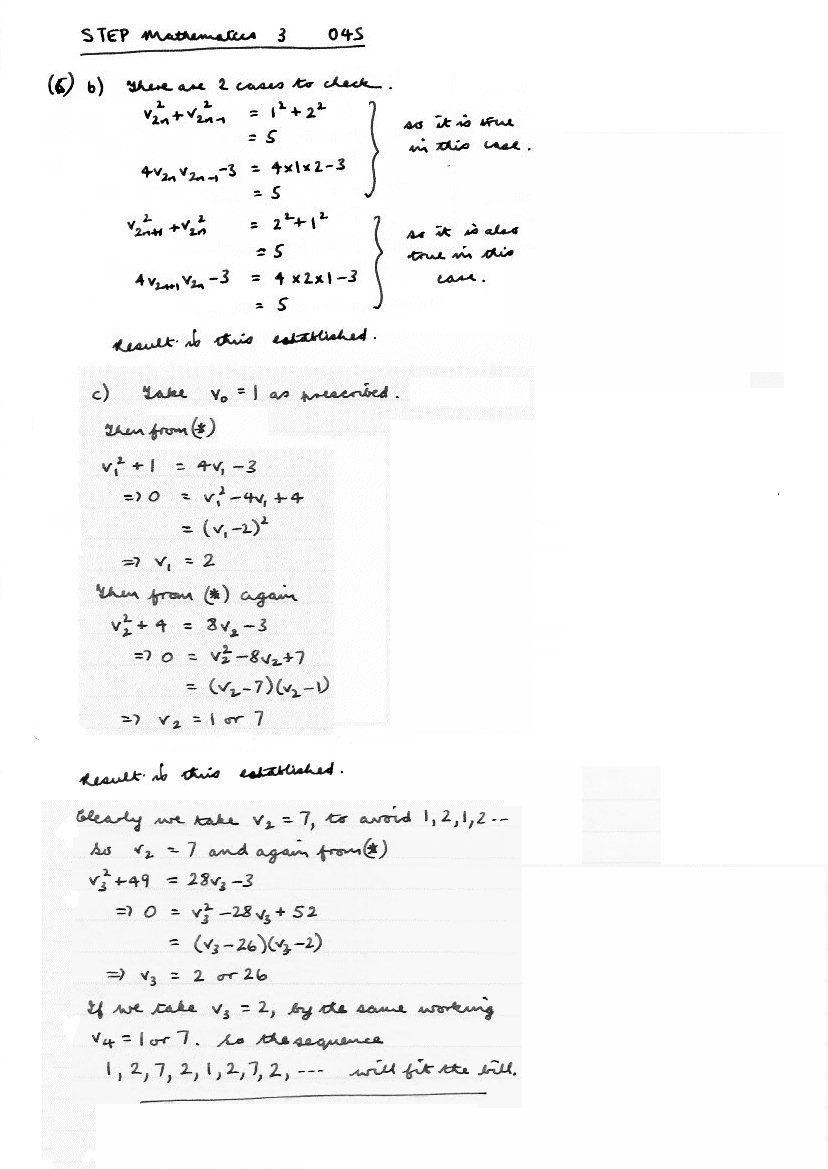 STEP Mathematics 3 04S
(6) b) There are 2 cases to check.
v²₂ₙ + v²₂ₙ₋₁ = 1² + 2²
= 5
4v₂ₙ v₂ₙ₋₁ - 3 = 4×1×2 - 3
= 5
so it is true
in this case.
v²₂ₙ₊₁ + v²₂ₙ = 2² + 1²
= 5
4v₂ₙ₊₁ v₂ₙ - 3 = 4×2×1 - 3
= 5
so it is also
true in this
case.
Result is thus established.
c) Take v₀ = 1 as prescribed.
Then from (*)
v₁² + 1 = 4v₁ - 3
⇒ 0 = v₁² - 4v₁ + 4
= (v₁ - 2)²
⇒ v₁ = 2
Then from (*) again
v₂² + 4 = 8v₂ - 3
⇒ 0 = v₂² - 8v₂ + 7
= (v₂ - 7)(v₂ - 1)
⇒ v₂ = 1 or 7
Result is thus established.
Clearly we take v₂ = 7, to avoid 1, 2, 1, 2 --
so v₂ = 7 and again from (*)
v₃² + 49 = 28v₃ - 3
⇒ 0 = v₃² - 28v₃ + 52
= (v₃ - 26)(v₃ - 2)
⇒ v₃ = 2 or 26
If we take v₃ = 2, by the same working
v₄ = 1 or 7. So the sequence
1, 2, 7, 2, 1, 2, 7, 2, --- will fit the bill.